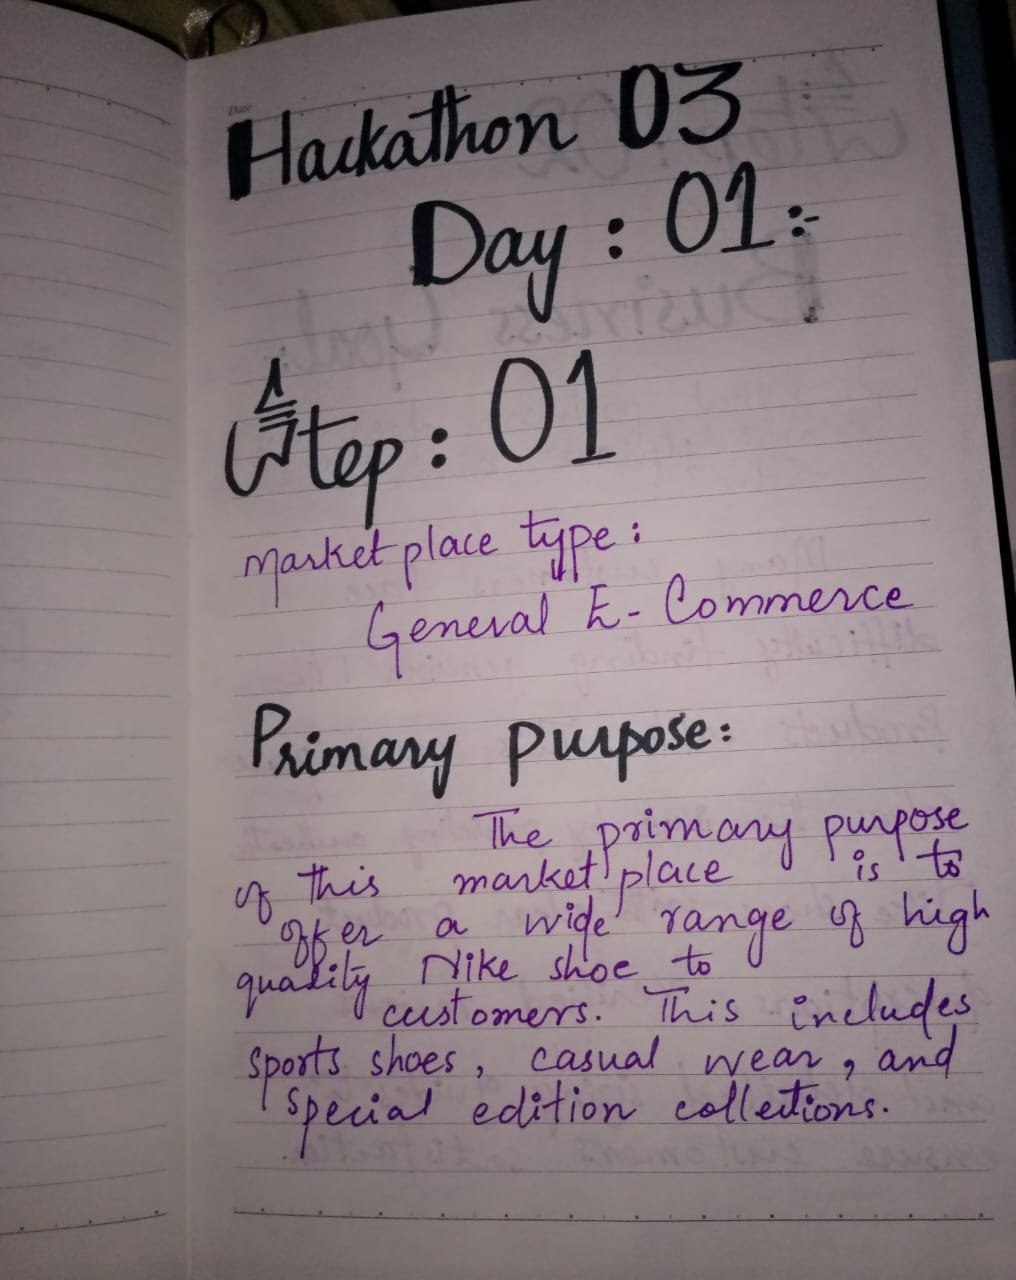 Date
Hackathon 03
Day : 01:-
Step : 01
Market place type :
General E-Commerce
Primary purpose:
The primary purpose
of this market place is to
offer a wide range of high
quality Nike shoe to
customers. This includes
sports shoes, casual wear, and
special edition collections.